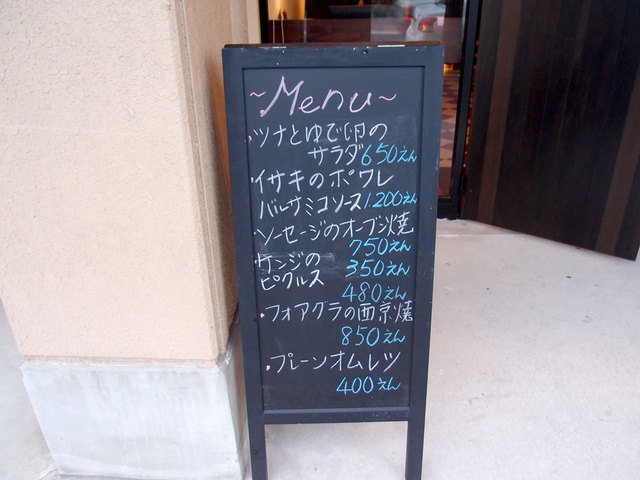 ~Menu~
・ツナとゆで卵の
サラダ650えん
・イサキのポワレ
バルサミコソース1.200えん
・ソーセージのオーブン焼
750えん
・ケンジの 350えん
ピクルス
480えん
・フォアグラの西京焼
850えん
・プレーンオムレツ
400えん